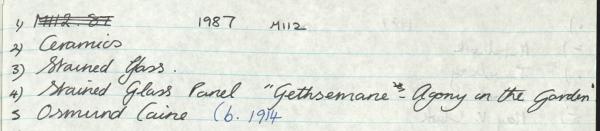 1) M112.87 1987 M112
2) Ceramics
3) Stained Glass.
4) Stained Glass Panel "Gethsemane" - Agony in the Garden"
5 Osmund Caine (b. 1914